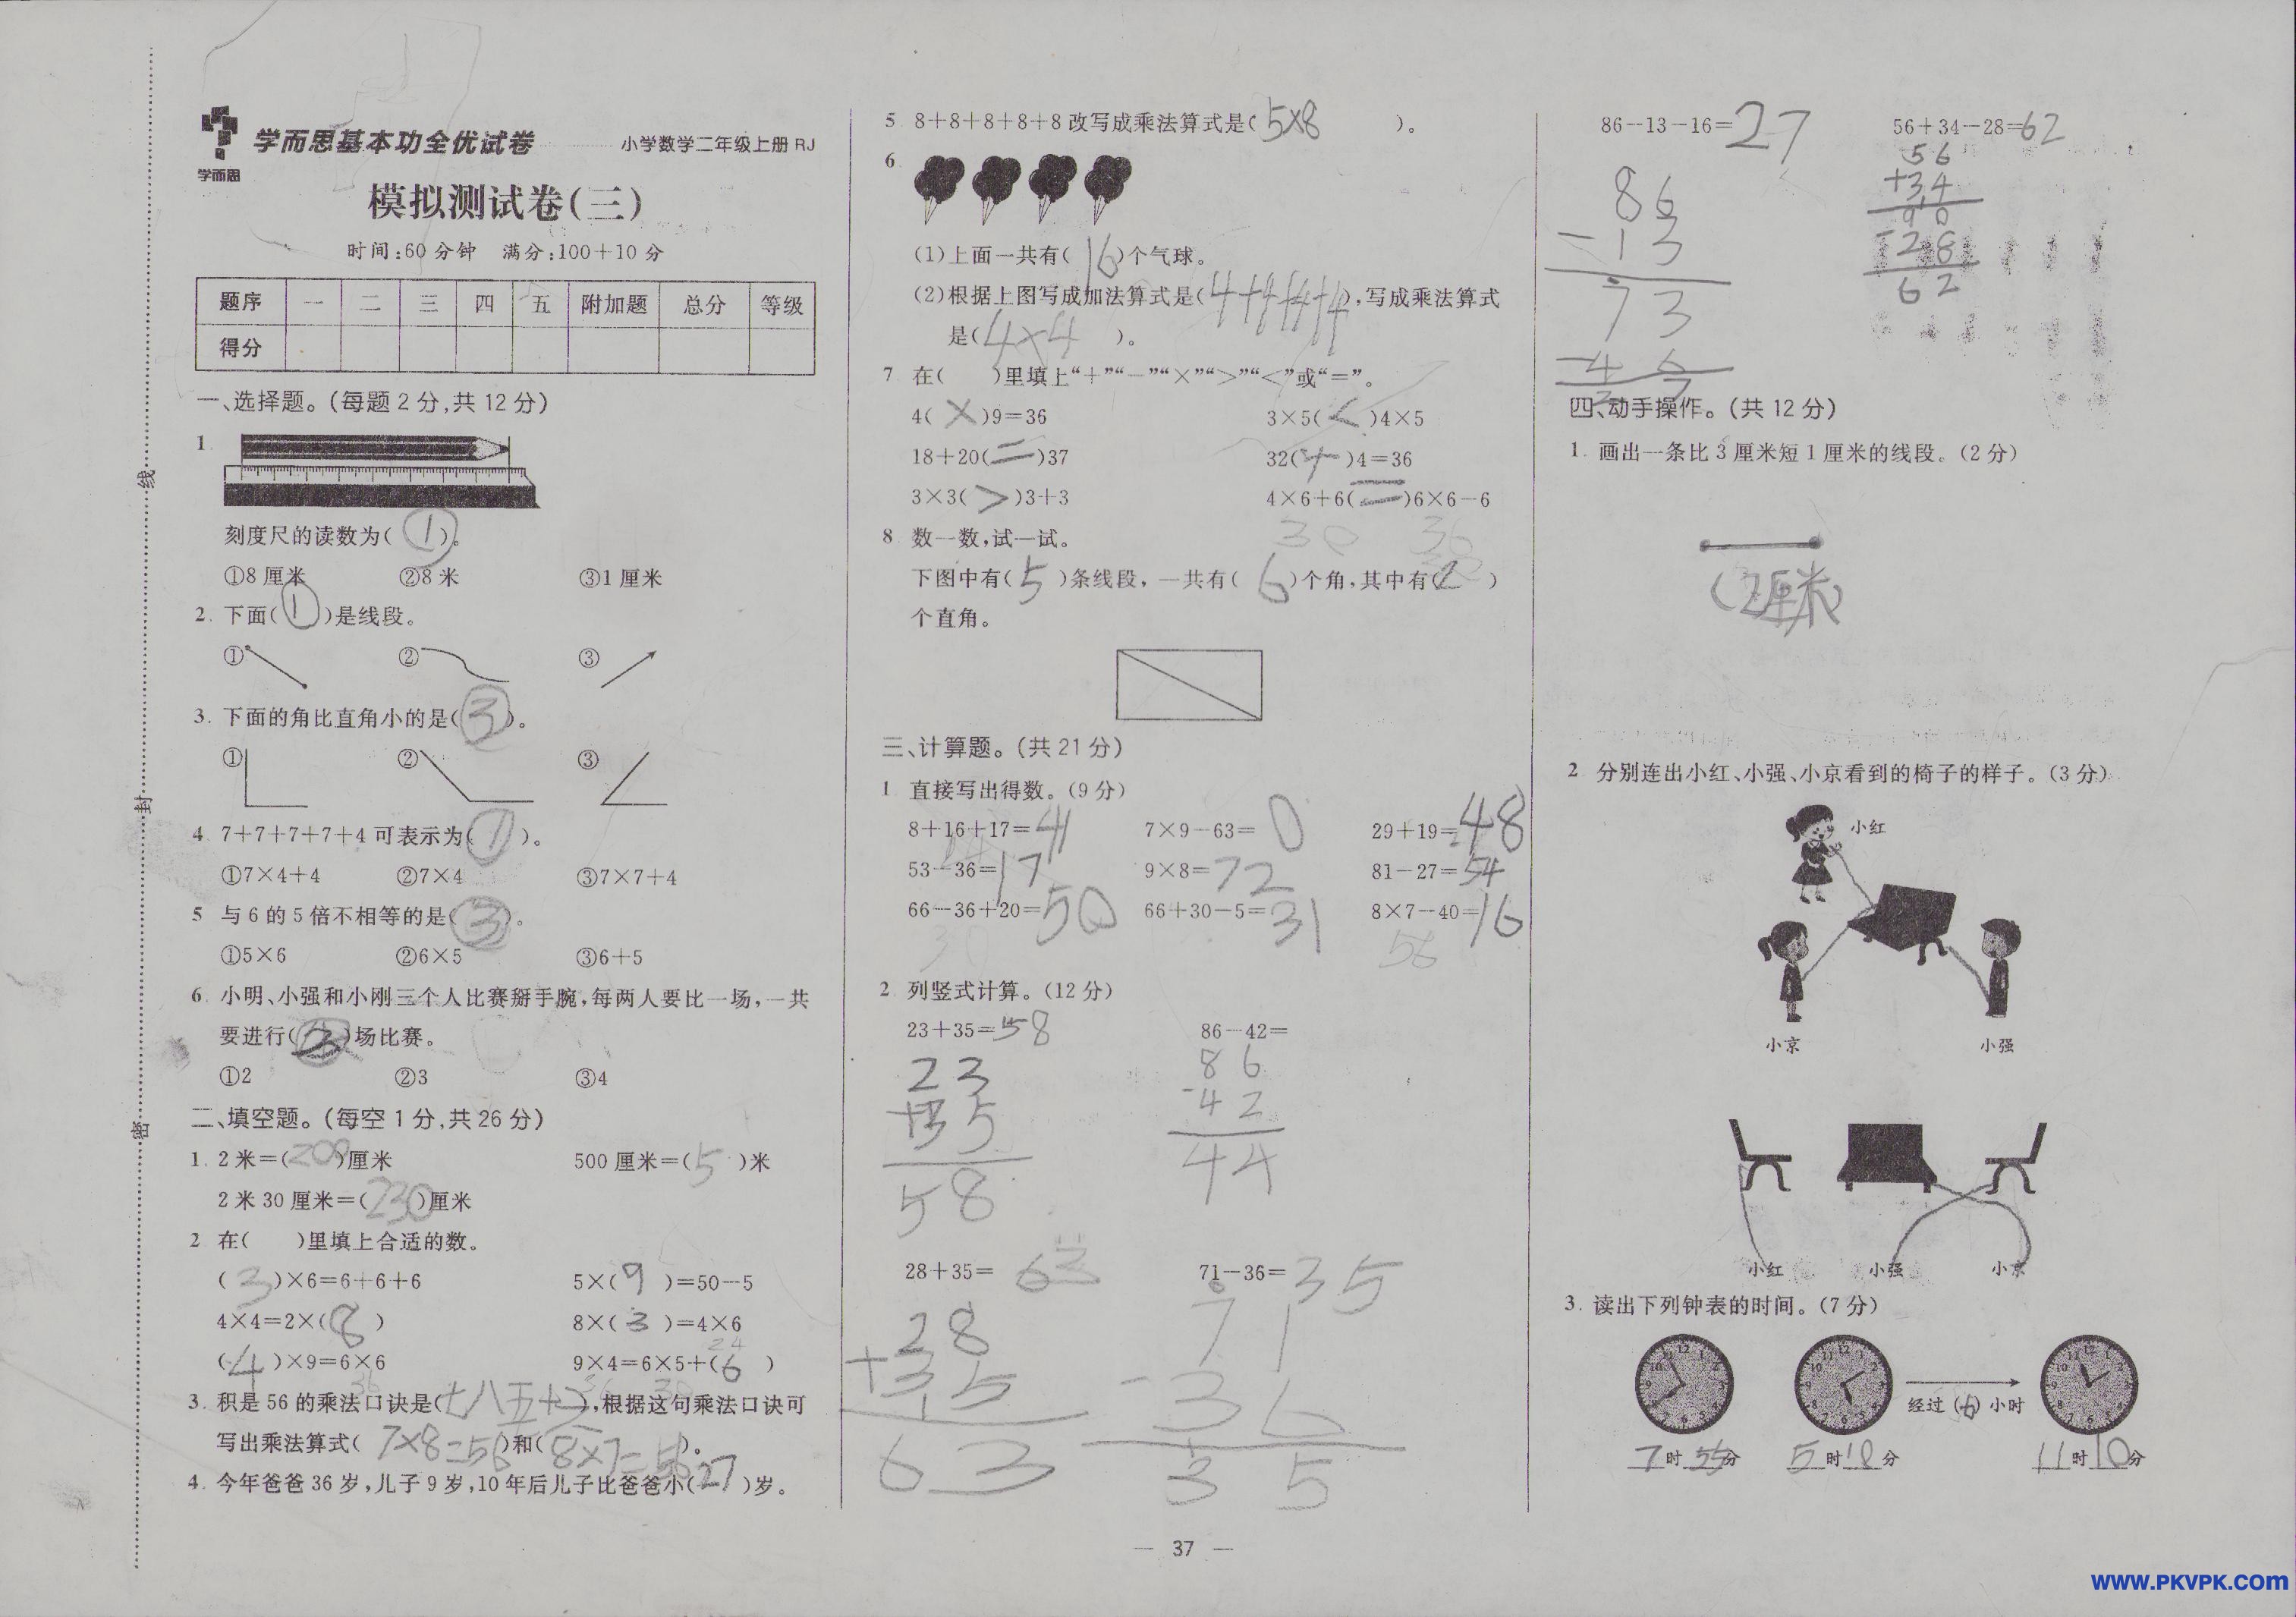 学而思
学而思基本功全优试卷 小学数学二年级上册 RJ
模拟测试卷(三)
时间:60分钟 满分:100+10分
题序 一 二 三 四 五 附加题 总分 等级
得分
一、选择题。(每题2分,共12分)
1.
刻度尺的读数为( ① )。
①8厘米 ②8米 ③1厘米
2. 下面( ① )是线段。
① ② ③
3. 下面的角比直角小的是( ③ )。
① ② ③
4. 7+7+7+7+4可表示为( ① )。
①7×4+4 ②7×4 ③7×7+4
5 与6的5倍不相等的是( ③ )。
①5×6 ②6×5 ③6+5
6. 小明、小强和小刚三个人比赛掰手腕,每两人要比一场,一共
要进行( )场比赛。
①2 ②3 ③4
二、填空题。(每空1分,共26分)
1. 2米=(200)厘米 500厘米=(5)米
2米30厘米=(230)厘米
2 在( )里填上合适的数。
(3)×6=6+6+6 5×(9)=50-5
4×4=2×(8) 8×(3)=4×6
24
(4)×9=6×6 9×4=6×5+(6)
36 36 30
3. 积是56的乘法口诀是(七八五十六),根据这句乘法口诀可
写出乘法算式(7×8=56)和(8×7=56)。
4. 今年爸爸36岁,儿子9岁,10年后儿子比爸爸小(27)岁。
5 8+8+8+8+8改写成乘法算式是(5×8)。
6
(1)上面一共有(16)个气球。
(2)根据上图写成加法算式是(4+4+4+4),写成乘法算式
是(4×4)。
7 在( )里填上“+”“-”“×”“>”“<”或“=”。
4(×)9=36 3×5(<)4×5
18+20(=)37 32(+)4=36
3×3(>)3+3 4×6+6(=)6×6-6
30 36
8 数一数,试一试。
下图中有(5)条线段,一共有(6)个角,其中有(2)
个直角。
三、计算题。(共21分)
1 直接写出得数。(9分)
8+16+17=41 7×9-63=0 29+19=48
24
53-36=17 9×8=72 81-27=54
66-36+20=50 66+30-5=31 8×7-40=16
30 56
2 列竖式计算。(12分)
23+35=58 86-42=
23 86
+35 -42
58 44
28+35=63 71-36=35
28 71
+35 -36
63 35
86-13-16=27 56+34-28=62
86 56
-13 +34
73 90
-46 -28
27 62
四、动手操作。(共12分)
1. 画出一条比3厘米短1厘米的线段。(2分)
(2厘米)
2 分别连出小红、小强、小京看到的椅子的样子。(3分)
小红
小京 小强
小红 小强 小京
3. 读出下列钟表的时间。(7分)
经过(6)小时
7时55分 5时10分 11时10分
— 37 —
线
封
密
www.PKVPK.com